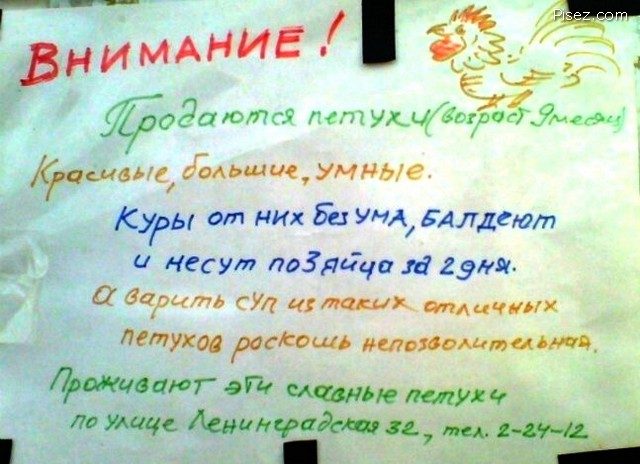 Pisez.com
ВНИМАНИЕ!
Продаются петухи (возраст 9 месяц)
Красивые, большие, умные.
Куры от них без ума, БАЛДеют
и несут по 3 яйца за 2 дня.
А варить суп из таких отличных
петухов роскошь непозволительная.
Проживают эти славные петухи
по улице Ленинградская 32, тел. 2-24-12